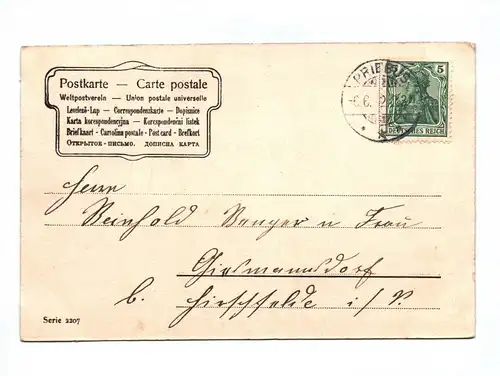 Postkarte — Carte postale
Weltpostverein — Union postale universelle
Levelező-Lap — Correspondenzkarte — Dopisnice
Karta korespondencyjna — Korespondenční lístek
Briefkaart — Cartolina postale — Post card — Brefkort
Открытое-письмо. Дописна карта
PRIEBUS
5
DEUTSCHES REICH
Herrn
Reinhold Wenger u Frau
Giesmannsdorf
b. Hirschfelde i/
Serie 2207